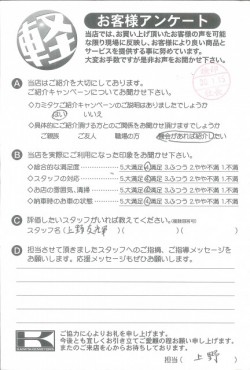 軽
お客様アンケート
当店では、お買い上げ頂いたお客様の声を可能
な限り現場に反映し、お客様により良い商品と
サービスを提供する事に努めています。
大変お手数ですが是非お声をお聞かせ下さい。
A 当店はご紹介を大切にしております。
ご紹介キャンペーンについてお聞かせ下さい。
◇カミタケご紹介キャンペーンのご説明はありましたでしょうか
はい いいえ
◇具体的にご紹介頂ける方とのご関係をお聞かせ頂けますでしょうか
ご親族 ご友人 職場の方 機会があれば紹介したい
B 当店を実際にご利用になった印象をお聞かせ下さい。
◇総合的な満足度 5.大満足 4.満足 3.ふつう 2.やや不満 1.不満
◇スタッフの対応 5.大満足 4.満足 3.ふつう 2.やや不満 1.不満
◇お店の雰囲気、清掃 5.大満足 4.満足 3.ふつう 2.やや不満 1.不満
◇納車時のお車の状態 5.大満足 4.満足 3.ふつう 2.やや不満 1.不満
C 評価したいスタッフがいれば教えてください。
スタッフ名( 上野 )
D 担当させて頂きましたスタッフへのご指摘、ご指導メッセージを
お願いします。応援メッセージもぜひお願いします。
K
ご協力に心よりお礼を申し上げます。
今後とも宜しくお引き立てご愛顧の程お願い申し上げます。
またのご来店を心からお待ちしております。
担当( 上野 )